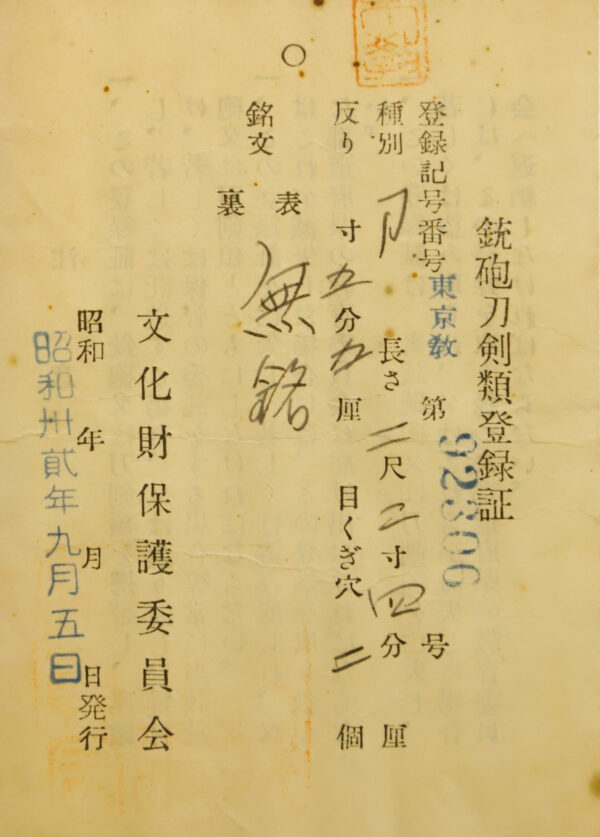 銃砲刀剣類登録証
登録記号番号 東京教 第 92306 号
種別 刀 長さ 二尺二寸四分 厘
反り 寸五分 厘 目くぎ穴 二個
銘文 表 無銘
裏
文化財保護委員会
昭和 年 月 日発行
昭和卅貳年九月五日